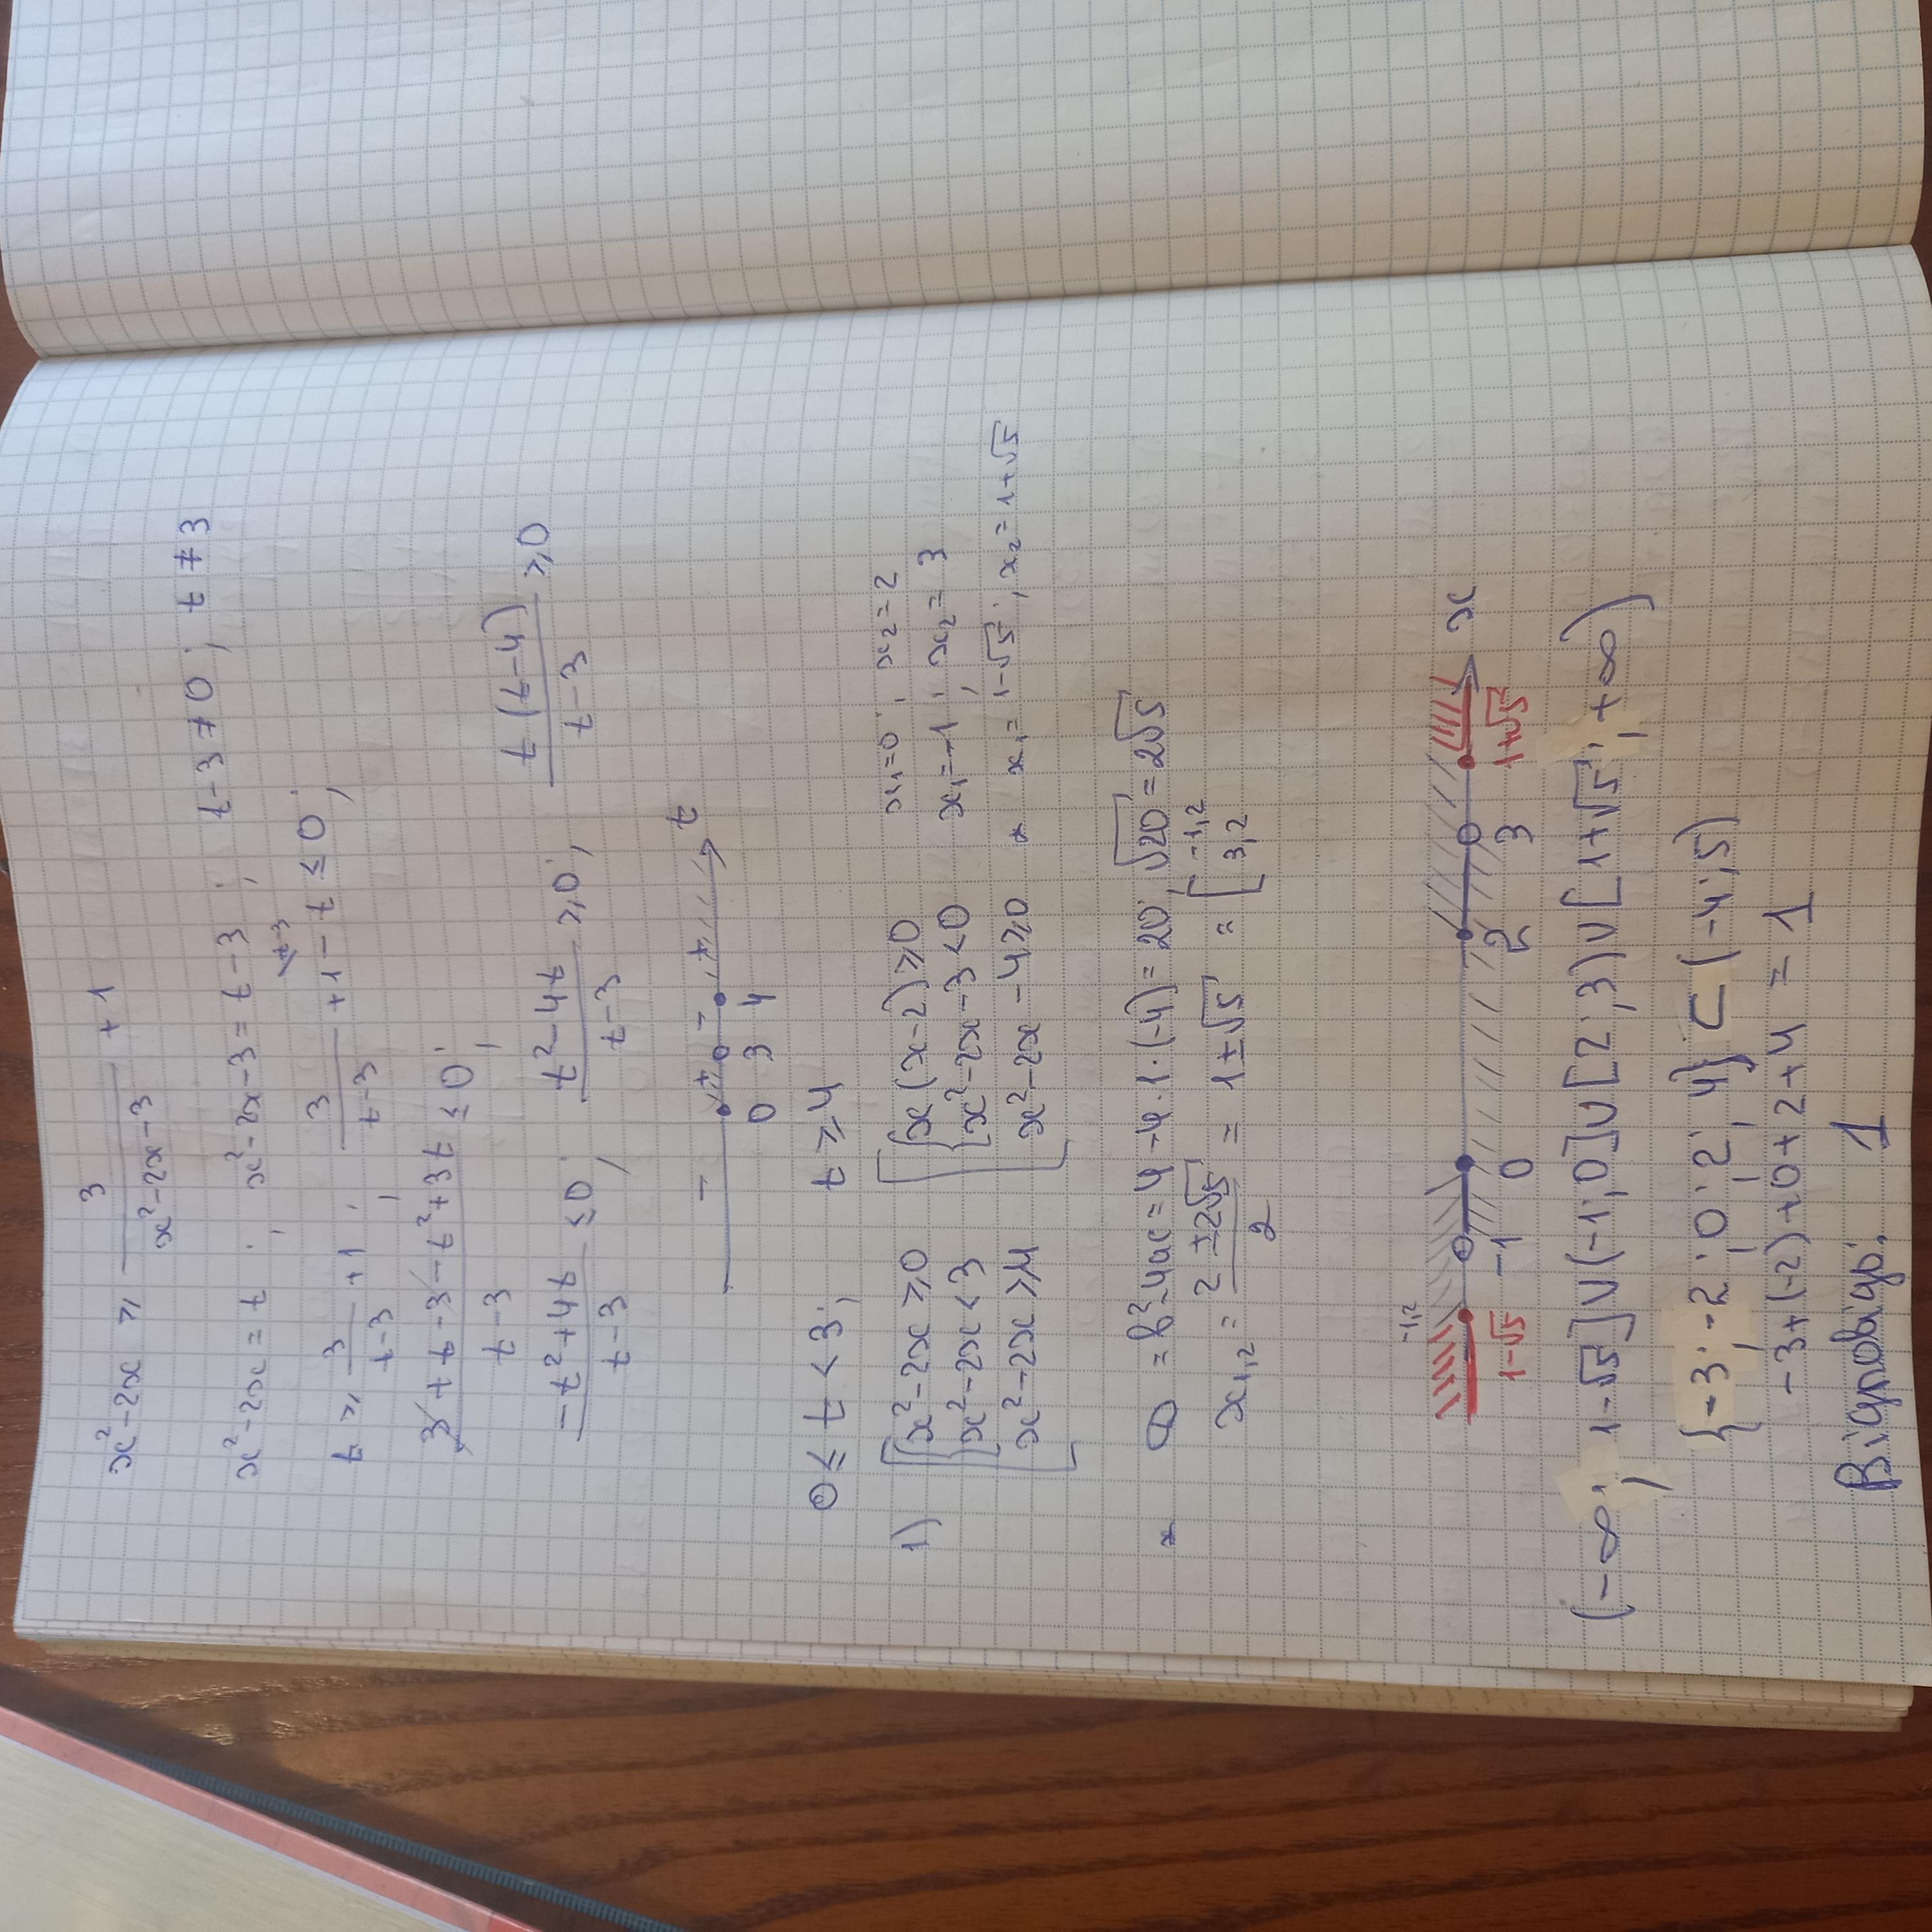 x²-2x ⩾ 3/(x²-2x-3) + 1
x²-2x = t ; x²-2x-3 = t-3 ; t-3 ≠ 0 ; t ≠ 3
t ⩾ 3/(t-3) + 1 ; 3/(t-3) + 1 - t ≤ 0 ;
(3 + t - 3 - t² + 3t)/(t-3) ≤ 0 ;
(-t²+4t)/(t-3) ≤ 0 ; (t²-4t)/(t-3) ⩾ 0 ; t(t-4)/(t-3) ⩾ 0
- + - + t
0 3 4
0 ≤ t < 3 ; t ⩾ 4
1) [ { x²-2x ⩾ 0 [ { x(x-2) ⩾ 0 x₁=0 ; x₂=2
x²-2x < 3 x²-2x-3 < 0 x₁=-1 ; x₂=3
x²-2x ⩾ 4 x²-2x-4 ⩾ 0 * x₁=1-√5 ; x₂=1+√5
* D = b²-4ac = 4-4·1·(-4) = 20 ; √20 = 2√5
x₁,₂ = (2±2√5)/2 = 1±√5 = [ -1,2 3,2
-1,2
x
1-√5 -1 0 2 3 1+√5
(-∞ ; 1-√5] ∪ (-1 ; 0] ∪ [2 ; 3) ∪ [1+√5 ; +∞)
{-3 ; -2 ; 0 ; 2 ; 4} ⊂ (-4 ; 5)
-3+(-2)+0+2+4 = 1
Відповідь: 1